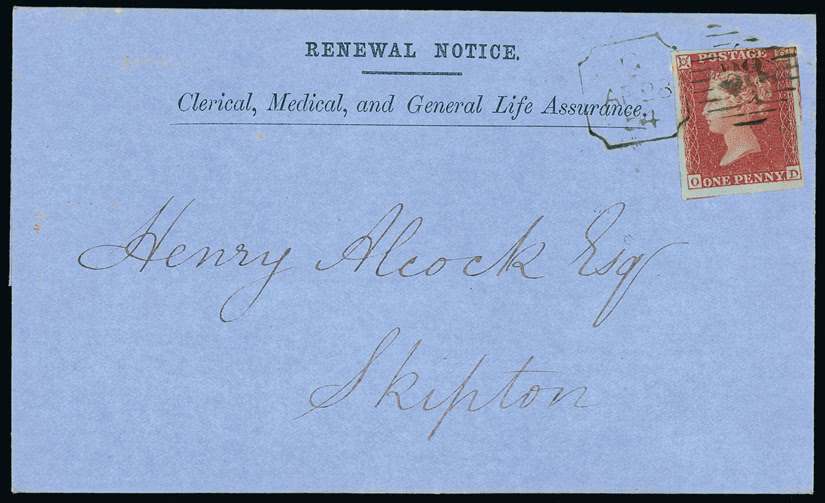 RENEWAL NOTICE.
Clerical, Medical, and General Life Assurance.
POSTAGE
ONE PENNY
O D
Henry Alcock Esq
Skipton